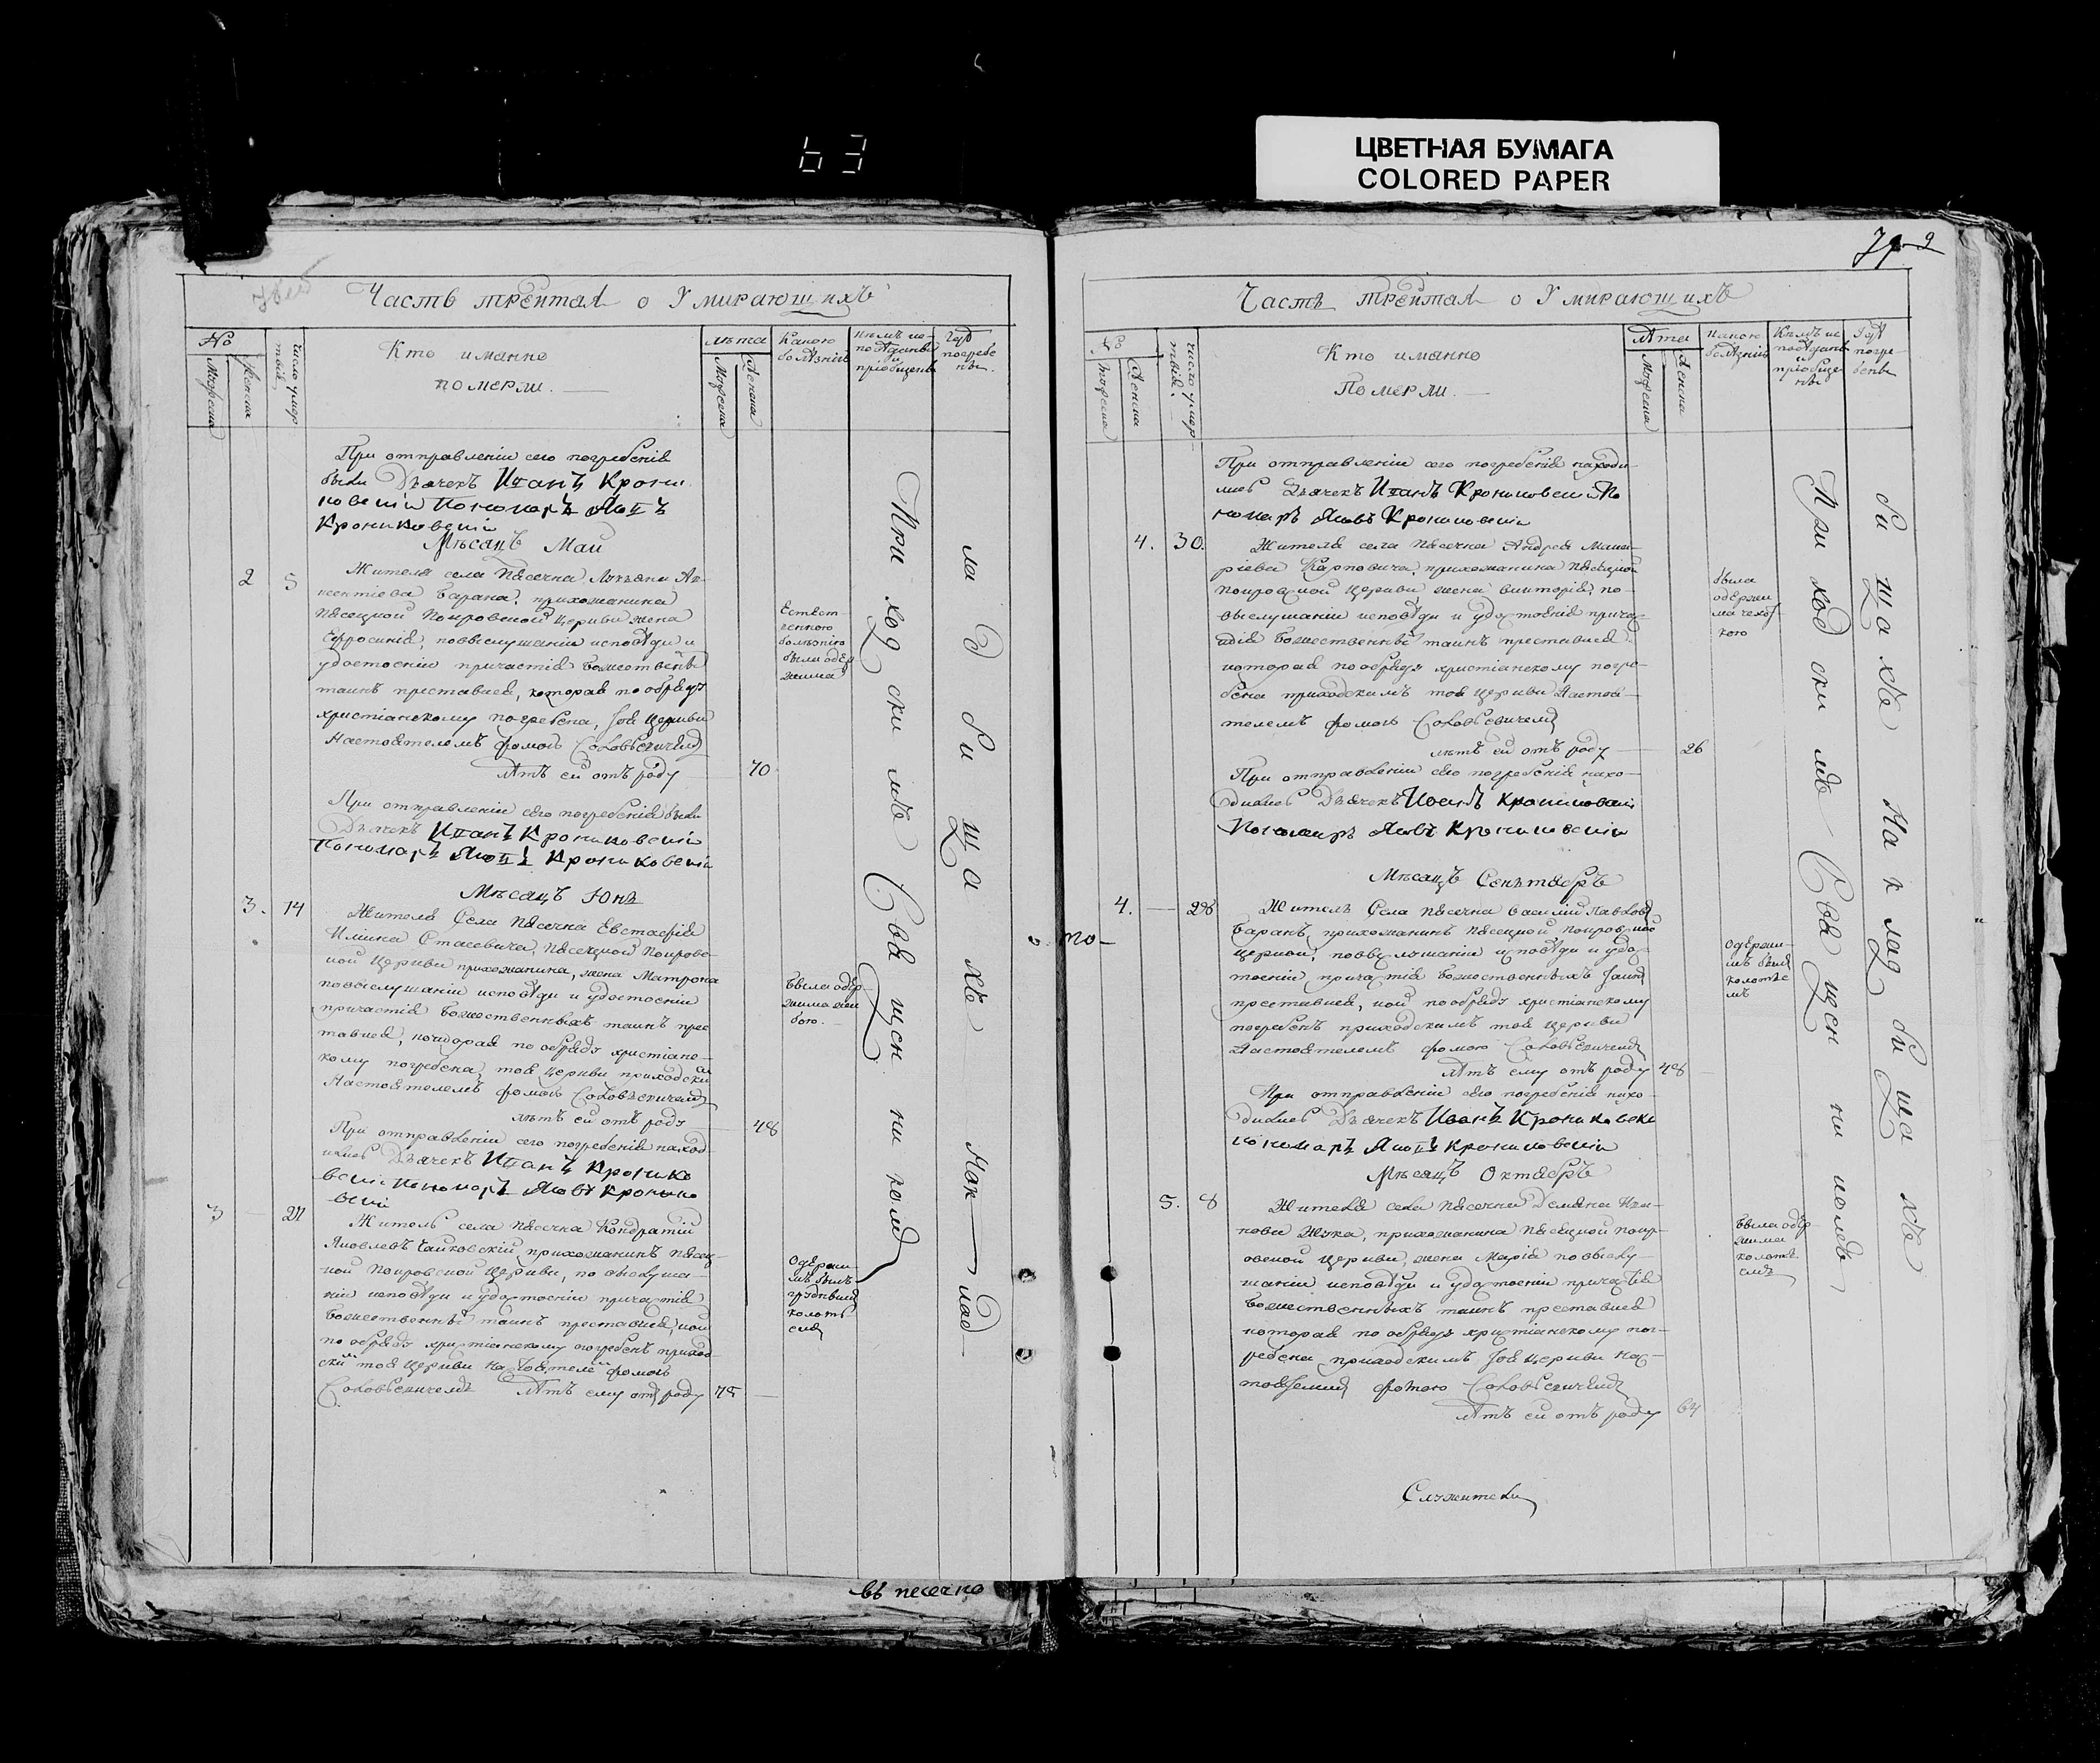 63
ЦВЕТНАЯ БУМАГА
COLORED PAPER
Часть третая о Умирающихъ
№
Мужеска
Женска
число умертвій
Кто имянно
померли.
лѣта
Мужеска
Женска
Какою
болѣзнію
Кѣмъ ис-
повѣданы
и
пріобщены
Гдѣ
погребе
ны.
При отправленіи сего погребенія
были Дьячекъ Иванъ Крони
ковскій Пономарь Яковъ
Крониковскій
Мѣсяцъ Май
2 5
Жителя села Пасечна Лукьяна
Барана, прихожанина
Пасецкой Покровской церкви жена
Ефросинія, повыслушаніи исповѣди и
удостоеніи причастія Божественныхъ
таинъ преставися, которая по обряду
христіанскому погребена, тоя церкви
Настоятелемъ фомою Соловьевичемъ
лѣтъ ей отъ роду 70
Естест-
венною
болѣзнію
была одер
жима
При отправленіи сего погребенія были
Дьячекъ Иванъ Крониковскій
Пономарь Яковъ Крониковскій
Мѣсяцъ Юнь
3. 14
Жителя Села Пасечна Евстафія
Илiина Стасевича, Пасецкой Покровс-
кой церкви прихожанина, жена Матрона
повыслушаніи исповѣди и удостоеніи
причастія Божественныхъ таинъ прес
тавися, которая по обряду христіанс-
кому погребена, тоя церкви приходски
Настоятелемъ фомою Соловьевичемъ
лѣтъ ей отъ роду 48
Была одер-
жима
При отправленіи сего погребенія наход
ились Дьячекъ Иванъ Кронико
вскій Пономарь Яковъ Кронико
вскій
3 — 27
Житель села Пасечна Кондратій
Яковлевъ Чайковскій, прихожанинъ Пасец-
кой Покровской церкви, по выслуша-
ніи исповѣди и удостоеніи причастія
Божественныхъ таинъ преставися, кой
по обряду христіанскому погребенъ приход
скимъ тоя церкви Настоятелемъ фомою
Соловьевичемъ лѣтъ ему отъ роду 75
Одержи-
мъ былъ
груднымъ
колоть
емъ
Приходскимъ Священникомъ
на Кладбищахъ
въ песечно
Часть третая о Умирающихъ
№
Мужеска
Женска
число умер-
твій.
Кто имянно
Померли.
лѣта
Мужеска
Женска
какою
болѣзнію
Кѣмъ ис
повѣданы
и
пріобще
ны
Гдѣ
погре-
бены
При отправленіи сего погребенія находи-
лись Дьячекъ Иванъ Крониковскій По
номарь Яковъ Крониковскій
4. 30.
Жителя села Пасечна Андрея
Карповича, прихожанина Пасецкой
Покровской церкви, жена Викторія, по-
выслушаніи исповѣди и удостоеніи прича-
стія Божественныхъ таинъ преставися
которая по обряду христіанскому погре-
бена приходскимъ тоя церкви Настоя-
телемъ фомою Соловьевичемъ
лѣтъ ей отъ роду 26
была
одержи
ма чехот
кою
При отправленіи сего погребенія нахо-
дились Дьячекъ Крониковскій
Пономарь Яковъ Крониковскій
Мѣсяцъ Сентябрь
4. — 28
Житель Села Пасечна Василій Павловъ
Баранъ, прихожанинъ Пасецкой Покровской
церкви, повыслушаніи исповѣди и удос-
тоеніи причастія Божественныхъ таинъ
преставися, кой по обряду христіанскому
погребенъ приходскимъ тоя церкви
Настоятелемъ фомою Соловьевичемъ
лѣтъ ему отъ роду 48
Одержи-
мъ былъ
колотье
мъ
При отправленіи сего погребенія нахо-
дились Дьячекъ Иванъ Крониковски
Пономарь Яковъ Крониковскій
Мѣсяцъ Октябрь
5. 8
Жителя села Пасечна Демяна
Жука, прихожанина Пасецкой Покр-
овской церкви, жена Марія по выслу-
шаніи исповѣди и удостоеніи причастія
Божественныхъ таинъ преставися
которая по обряду христіанскому пог-
ребена приходскимъ тоя церкви Нас-
тоятелемъ фомою Соловьевичемъ
лѣтъ ей отъ роду 64
Была одер-
жима
колоть
емъ
Приходскимъ Священникомъ
На кладбищахъ
Служители